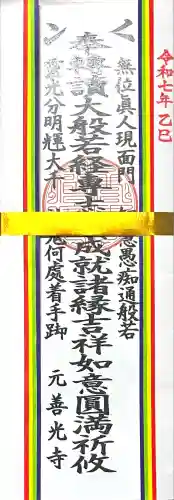 令和七年 乙巳
無位眞人現面門 愚痴通般若
奉轉讀大般若経專 成就諸縁吉祥如意圓満祈攸
霊光分明輝大千 何處着手脚
元善光寺